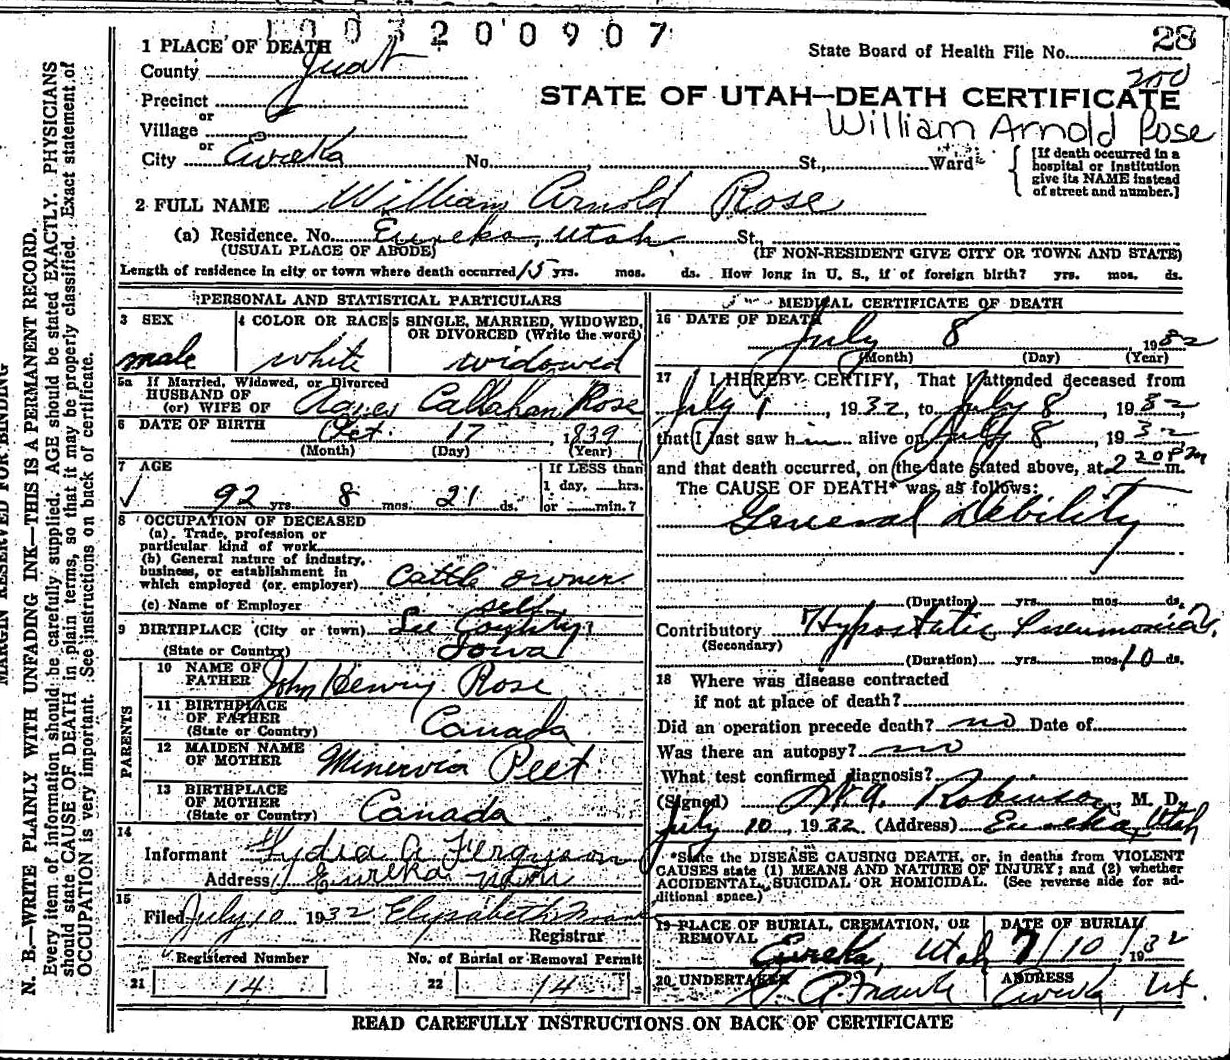 1003200907
1 PLACE OF DEATH
State Board of Health File No. 28
County Juab
200
Precinct
STATE OF UTAH—DEATH CERTIFICATE
or
Village
William Arnold Rose
or
City Eureka No. St, Ward
[If death occurred in a hospital or institution give its NAME instead of street and number.]
2 FULL NAME William Arnold Rose
(a) Residence. No. Eureka, Utah St.
(USUAL PLACE OF ABODE) (IF NON-RESIDENT GIVE CITY OR TOWN AND STATE)
Length of residence in city or town where death occurred 15 yrs. mos. ds. How long in U. S., if of foreign birth? yrs. mos. ds.
PERSONAL AND STATISTICAL PARTICULARS
3 SEX
male
4 COLOR OR RACE
white
5 SINGLE, MARRIED, WIDOWED, OR DIVORCED (Write the word)
widowed
5a If Married, Widowed, or Divorced
HUSBAND OF
(or) WIFE OF Agnes Callahan Rose
6 DATE OF BIRTH Oct. 17, 1839
(Month) (Day) (Year)
7 AGE
If LESS than
1 day, hrs.
92 yrs. 8 mos. 21 ds. or min.?
8 OCCUPATION OF DECEASED
(a) Trade, profession or
particular kind of work
(b) General nature of industry,
business, or establishment in
which employed (or employer) Cattle owner
(c) Name of Employer self
9 BIRTHPLACE (City or town) Lee County,
(State or Country) Iowa
PARENTS
10 NAME OF FATHER John Henry Rose
11 BIRTHPLACE OF FATHER (State or Country) Canada
12 MAIDEN NAME OF MOTHER Minervia Peet
13 BIRTHPLACE OF MOTHER (State or Country) Canada
14
Informant Lydia A Ferguson
Address Eureka Utah
15
Filed July 10 1932 Elizabeth
Registrar
Registered Number No. of Burial or Removal Permit
21 14 22 14
MEDICAL CERTIFICATE OF DEATH
16 DATE OF DEATH
July 8 1932
(Month) (Day) (Year)
17 I HEREBY CERTIFY, That I attended deceased from
July 1, 1932, to July 8, 1932
that I last saw him alive on July 8, 1932,
and that death occurred, on the date stated above, at 2 20 P m.
The CAUSE OF DEATH* was as follows:
General Debility
(Duration) yrs. mos. ds.
Contributory Hypostatic Pneumonia.
(Secondary)
(Duration) yrs. mos. 10 ds.
18 Where was disease contracted
if not at place of death?
Did an operation precede death? no Date of
Was there an autopsy? no
What test confirmed diagnosis?
(Signed) Robinson, M. D.
July 10, 1932 (Address) Eureka, Utah
*State the DISEASE CAUSING DEATH, or, in deaths from VIOLENT
CAUSES state (1) MEANS AND NATURE OF INJURY; and (2) whether
ACCIDENTAL, SUICIDAL OR HOMICIDAL. (See reverse side for ad-
ditional space.)
19 PLACE OF BURIAL, CREMATION, OR REMOVAL
Eureka, Utah
DATE OF BURIAL
7/10/1932
20 UNDERTAKER
ADDRESS
Eureka, Ut.
READ CAREFULLY INSTRUCTIONS ON BACK OF CERTIFICATE
MARGIN RESERVED FOR BINDING
N. B.—WRITE PLAINLY WITH UNFADING INK—THIS IS A PERMANENT RECORD.
Every item of information should be carefully supplied. AGE should be stated EXACTLY. PHYSICIANS
should state CAUSE OF DEATH in plain terms, so that it may be properly classified. Exact statement of
OCCUPATION is very important. See instructions on back of certificate.